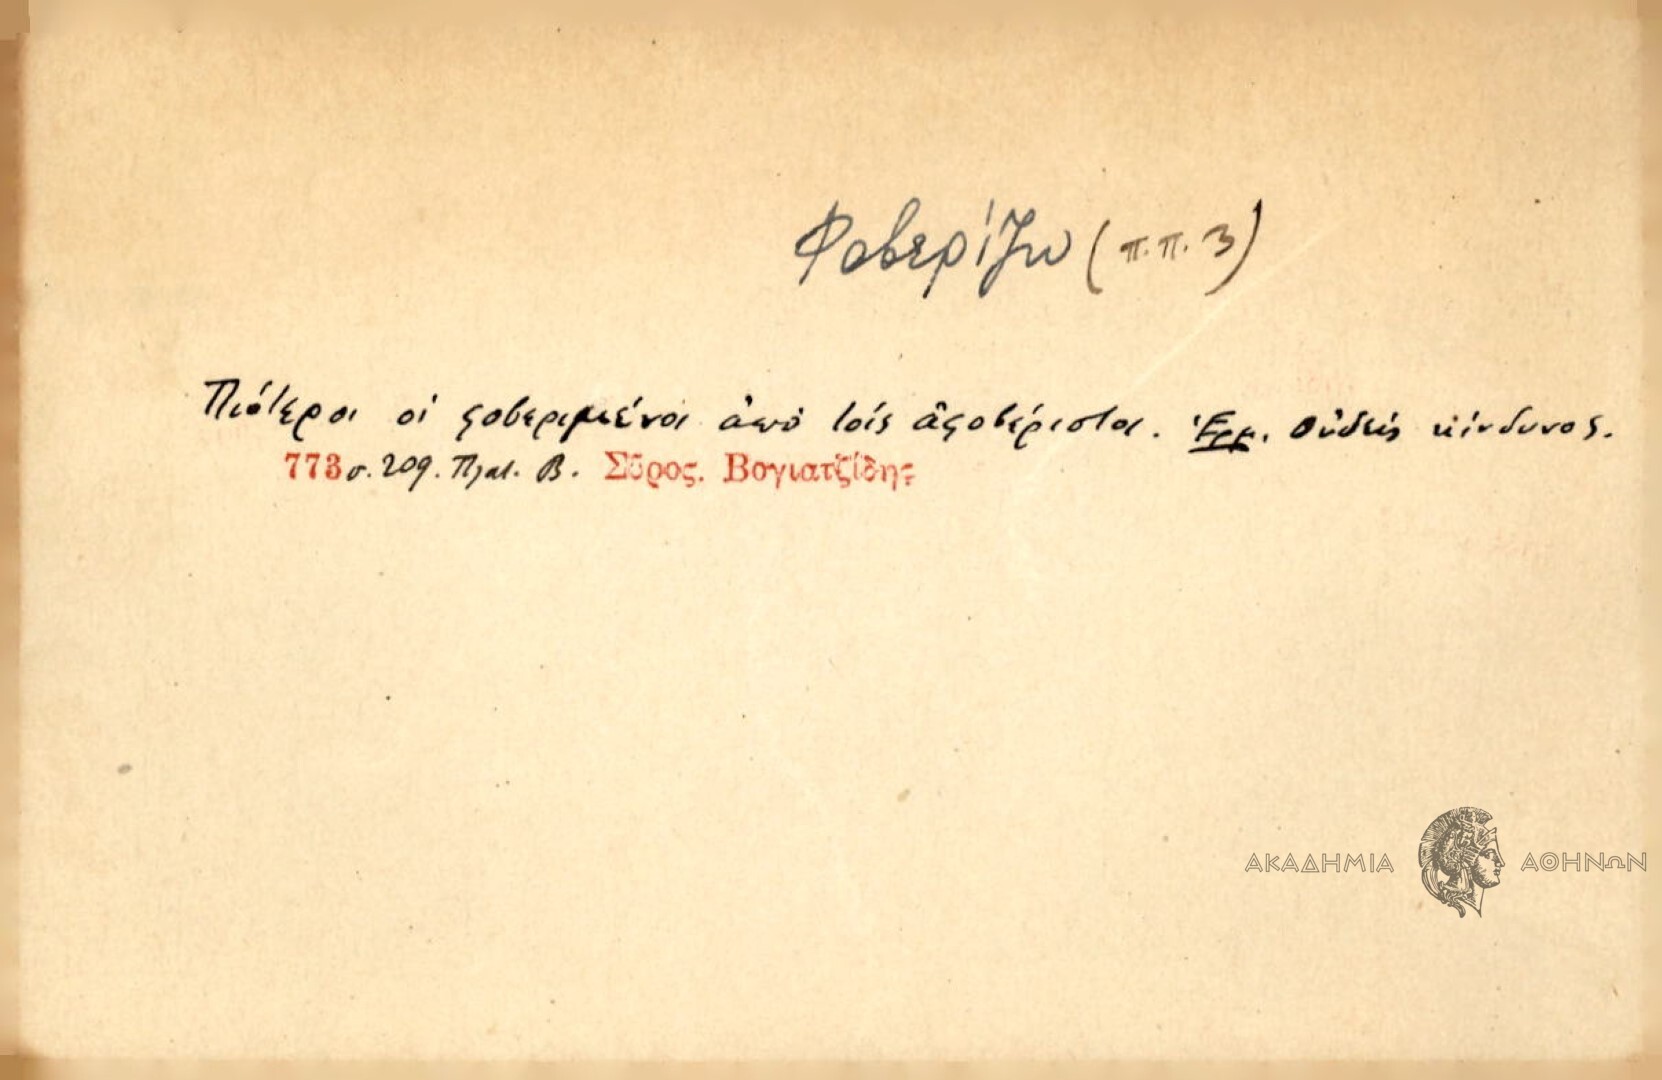 Φοβερίζω (π.π. 3)
Πιότεροι οἱ φοβεριμένοι ἀπὸ τοὶς ἀφοβέριστοι. Ἑρμ. Οὐδεὶς κίνδυνος.
773 σ. 209. Πλατ. Β. Σῦρος. Βογιατζίδης
ΑΚΑΔΗΜΙΑ ΑΘΗΝΩΝ